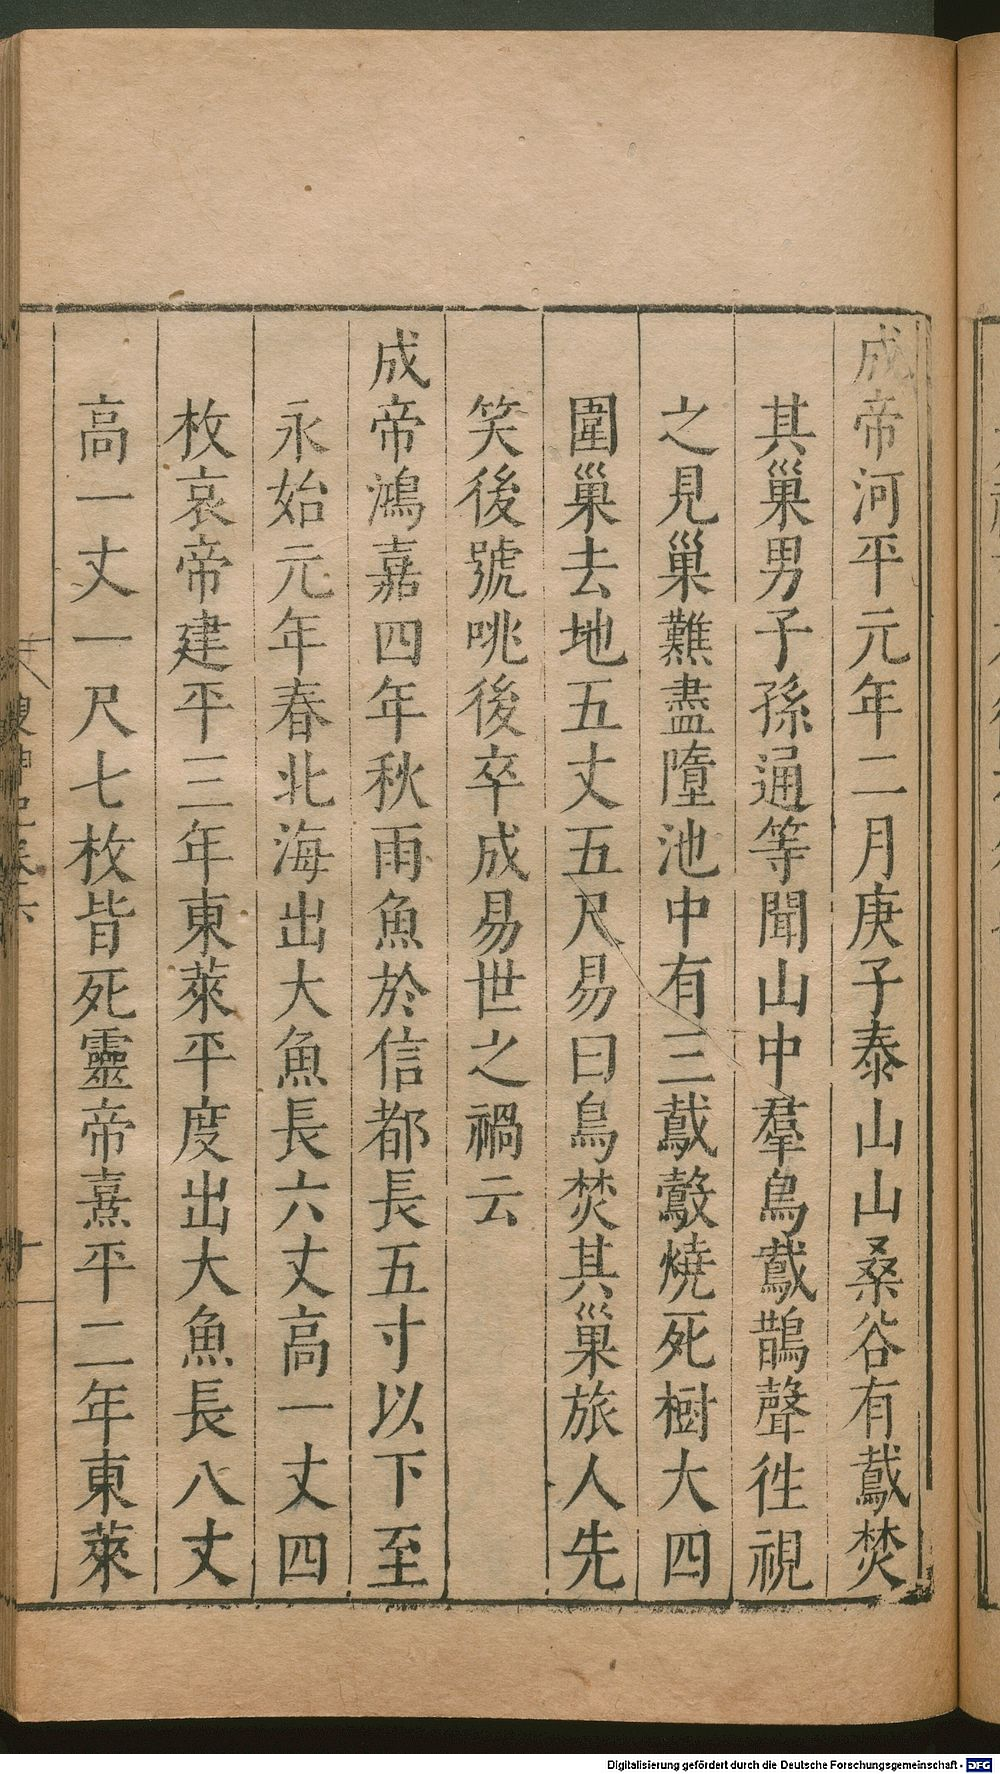 成帝河平元年二月庚子泰山山桑谷有䳒焚
其巢男子孫通等聞山中羣鳥䳒鵲聲徃視
之見巢䕼盡墮池中有三䳒鷇燒死樹大四
圍巢去地五丈五尺易曰鳥焚其巢旅人先
笑後號咷後卒成易世之禍云
成帝鴻嘉四年秋雨魚於信都長五寸以下至
永始元年春北海出大魚長六丈高一丈四
枚哀帝建平三年東萊平度出大魚長八丈
高一丈一尺七枚皆死靈帝熹平二年東萊
Digitalisierung gefördert durch die Deutsche Forschungsgemeinschaft - DFG